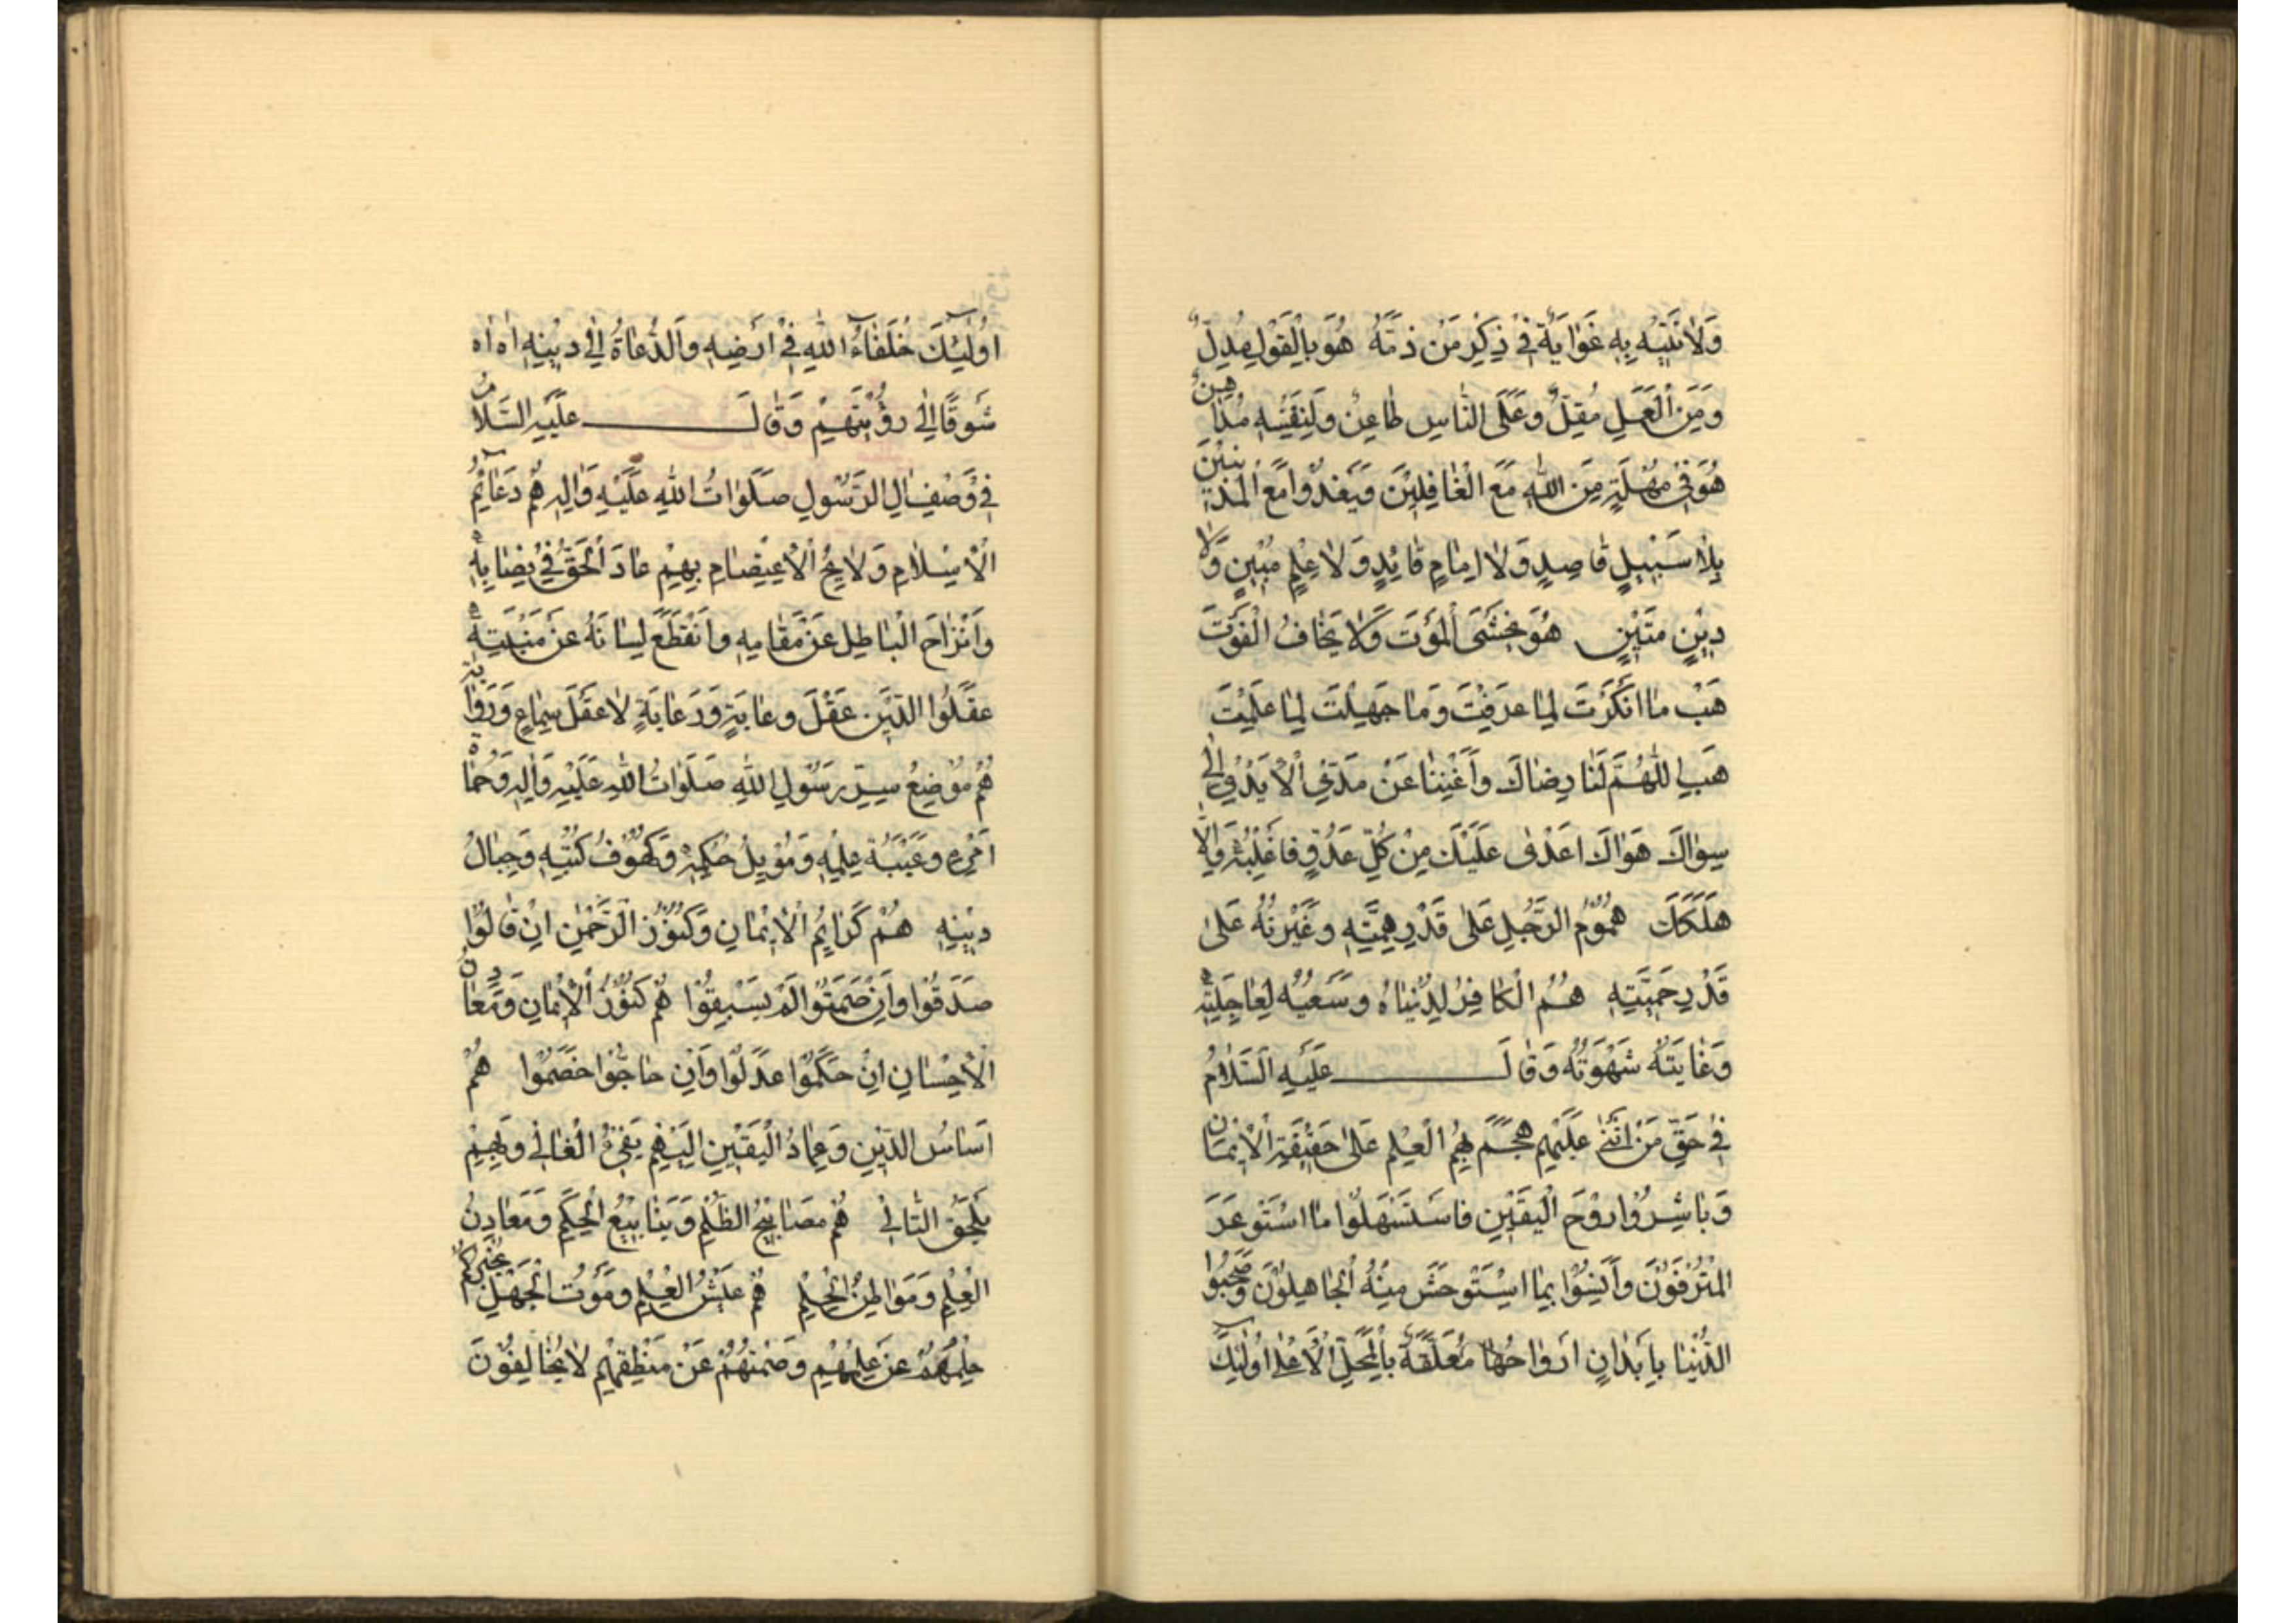 وَلَانَتَبِهُ بِهِ غَوَايَةٌ فِي ذِكْرِ مَنْ ذَمَّهُ هُوَ بِالْقَوْلِ مُدِلٌّ
وَمِنَ الْعَمَلِ مُقِلٌّ وَعَلَى النَّاسِ طَاعِنٌ وَلِنَفْسِهِ مُدَاهِنٌ
هُوَ فِي مُهْلَةٍ مِنَ اللهِ مَعَ الْغَافِلِيْنَ وَيَغْدُوا مَعَ الْمُذْنِبِيْنَ
بِلَا سَبِيْلٍ قَاصِدٍ وَلَا اِمَامٍ قَائِدٍ وَلَا عِلْمٍ مُبِيْنٍ وَلَا
دِيْنٍ مَتِيْنٍ هُوَ يَخْشَى الْمَوْتَ وَلَا يَخَافُ الْفَوْتَ
هَبْ مَا اَنْكَرْتَ لِمَا عَرَفْتَ وَمَا جَهِلْتَ لِمَا عَلِمْتَ
هَبِ اللّٰهُمَّ لَنَا رِضَاكَ وَاَغْنِنَا عَنْ مَدِّ الْاَيْدِيْ اِلٰى
سِوَاكَ هَوَاكَ اَعْدٰى عَلَيْكَ مِنْ كُلِّ عَدُوٍّ فَاغْلِبْهُ وَاِلَّا
هَلَكَكَ هُمُوْمُ الرَّجُلِ عَلٰى قَدْرِ هِمَّتِهِ وَغَيْرَتُهُ عَلٰى
قَدْرِ حَمِيَّتِهِ هُمُ الْكَافِرُ لِدُنْيَاهُ وَسَعْيُهُ لِعَاجِلَتِهِ
وَغَايَتُهُ شَهْوَتُهُ وَقَالَ عَلَيْهِ السَّلَامُ
فِي حَقِّ مَنْ اَثْنٰى عَلَيْهِمْ هَجَمَ بِهِمُ الْعِلْمِ عَلٰى حَقِيْقَةِ الْاِيْمَانِ
وَبَاشِرُوْا رَوْحَ الْيَقِيْنِ فَاسْتَسْهَلُوْا مَا اسْتَوْعَرَ
الْمُتْرَفُوْنَ وَاَنِسُوْا بِمَا اسْتَوْحَشَ مِنْهُ الْجَاهِلُوْنَ وَصَحِبُوْا
الدُّنْيَا بِاَبْدَانٍ اَرْوَاحُهَا مُعَلَّقَةٌ بِالْمَحَلِّ الْاَعْلٰى اُولٰئِكَ
اُولٰئِكَ خُلَفَاءُ اللهِ فِيْ اَرْضِهِ وَالدُّعَاةُ اِلٰى دِيْنِهِ اٰه اٰه
شَوْقًا اِلٰى رُؤْيَتِهِمْ وَقَالَ عَلَيْهِ السَّلَامُ
فِي وَصْفِ اٰلِ الرَّسُوْلِ صَلَوَاتُ اللهِ عَلَيْهِ وَاٰلِهِ هُمْ دَعَائِمُ
الْاِسْلَامِ وَلَايِجُ الْاِعْتِصَامِ بِهِمْ عَادَ الْحَقُّ فِيْ نِصَابِهِ
وَانْزَاحَ الْبَاطِلُ عَنْ مَقَامِهِ وَانْقَطَعَ لِسَانُهُ عَنْ مَنْبَتِهِ
عَقَلُوا الدِّيْنَ عَقْلَ وِعَايَةٍ وَرِعَايَةٍ لَا عَقْلَ سِمَاعٍ وَرِوَايَةٍ
هُمْ مَوْضِعُ سِرِّ رَسُوْلِ اللهِ صَلَوَاتُ اللهِ عَلَيْهِ وَاٰلِهِ وَحُمَاةُ
اَمْرِهِ وَعَيْبَةُ عِلْمِهِ وَمَوْئِلُ حُكْمِهِ وَكُهُوْفُ كُتُبِهِ وَجِبَالُ
دِيْنِهِ هُمْ كَرَائِمُ الْاِيْمَانِ وَكُنُوْزُ الرَّحْمٰنِ اِنْ قَالُوْا
صَدَقُوْا وَاِنْ صَمَتُوْا لَمْ يُسْبَقُوْا هُمْ كُنُوْزُ الْاِيْمَانِ وَمَعَادِنُ
الْاِحْسَانِ اِنْ حَكَمُوْا عَدَلُوْا وَاِنْ حَاجُّوْا خَصَمُوْا هُمْ
اَسَاسُ الدِّيْنِ وَعِمَادُ الْيَقِيْنِ اِلَيْهِمْ يَفِيْءُ الْغَالِيْ وَبِهِمْ
يَلْحَقُ التَّالِيْ هُمْ مَصَابِيْحُ الظُّلَمِ وَيَنَابِيْعُ الْحِكَمِ وَمَعَادِنُ
الْعِلْمِ وَمَوَاطِنُ الْحِلْمِ هُمْ عَيْشُ الْعِلْمِ وَمَوْتُ الْجَهْلِ يُخْبِرُكُمْ
حِلْمُهُمْ عَنْ عِلْمِهِمْ وَصَمْتُهُمْ عَنْ مَنْطِقِهِمْ لَا يُخَالِفُوْنَ